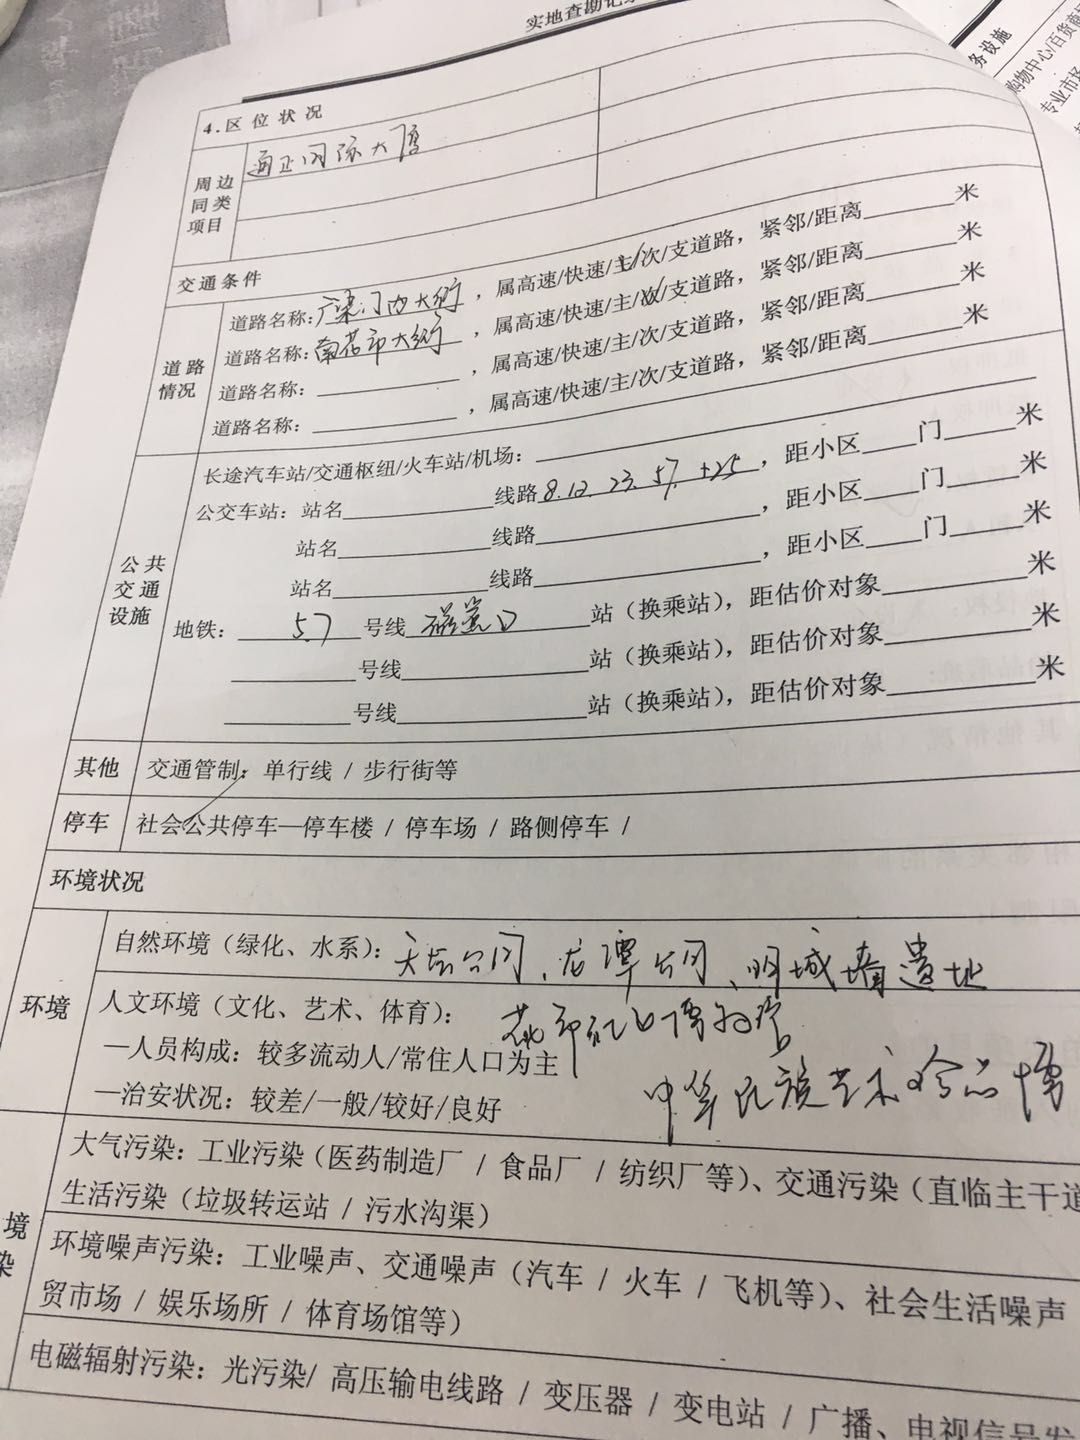 实地查勘记录
务设施
购物中心/百货商
专业市场
4.区位状况
周边同类项目 通正国际大厦
交通条件
道路情况
道路名称:广渠门内大街,属高速/快速/主/次/支道路,紧邻/距离______米
道路名称:南花市大街,属高速/快速/主/次/支道路,紧邻/距离______米
道路名称:______,属高速/快速/主/次/支道路,紧邻/距离______米
道路名称:______,属高速/快速/主/次/支道路,紧邻/距离______米
公共交通设施
长途汽车站/交通枢纽/火车站/机场:______
公交车站:站名______线路8.12.23.57.,距小区____门____米
站名______线路______,距小区____门____米
站名______线路______,距小区____门____米
地铁:5.7号线磁器口站(换乘站),距估价对象______米
______号线______站(换乘站),距估价对象______米
______号线______站(换乘站),距估价对象______米
其他 交通管制:单行线 / 步行街等
停车 社会公共停车—停车楼 / 停车场 / 路侧停车 /
环境状况
环境
自然环境(绿化、水系):天坛公园、龙潭公园、明城墙遗址
人文环境(文化、艺术、体育):花市
—人员构成:较多流动人/常住人口为主
—治安状况:较差/一般/较好/良好
中华民族艺术珍品博
境
染
大气污染:工业污染(医药制造厂 / 食品厂 / 纺织厂等)、交通污染(直临主干道
生活污染(垃圾转运站 / 污水沟渠)
环境噪声污染:工业噪声、交通噪声(汽车 / 火车 / 飞机等)、社会生活噪声
贸市场 / 娱乐场所 / 体育场馆等)
电磁辐射污染:光污染/ 高压输电线路 / 变压器 / 变电站 / 广播、电视信号发